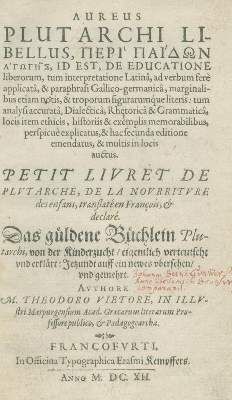 AUREUS
PLUTARCHI LI-
BELLUS, ΠΕΡΙ ΠΑΙΔΩΝ
ΑΓΩΓΗΣ, ID EST, DE EDUCATIONE
liberorum, tum interpretatione Latinâ, ad verbum ferè
applicatâ, & paraphrasi Gallico-germanicâ, marginali-
bus etiam notis, & troporum figurarumque literis: tum
analysi accuratâ, Dialecticâ, Rhetoricâ & Grammaticâ,
locis item ethicis, historiis & exemplis memorabilibus,
perspicuè explicatus, & hac secunda editione
emendatus, & multis in locis
auctus.
PETIT LIVRET DE
PLUTARCHE, DE LA NOURRITURE
des enfans, translaté en François, &
declaré.
Das güldene Büchlein Plu-
tarchi, von der Kinderzucht/ eigentlich verteutscht
und erklärt: Jetzundt auff ein newes übersehen/
und gemehrt.
AUTHORE
M. THEODORO VIETORE, IN ILLU-
stri Marpurgensium Acad. Græcarum literarum Pro-
fessore publico, & Pædagogearcha.
FRANCOFURTI,
In Officina Typographica Erasmi Kempfferi.
ANNO M. DC. XII.